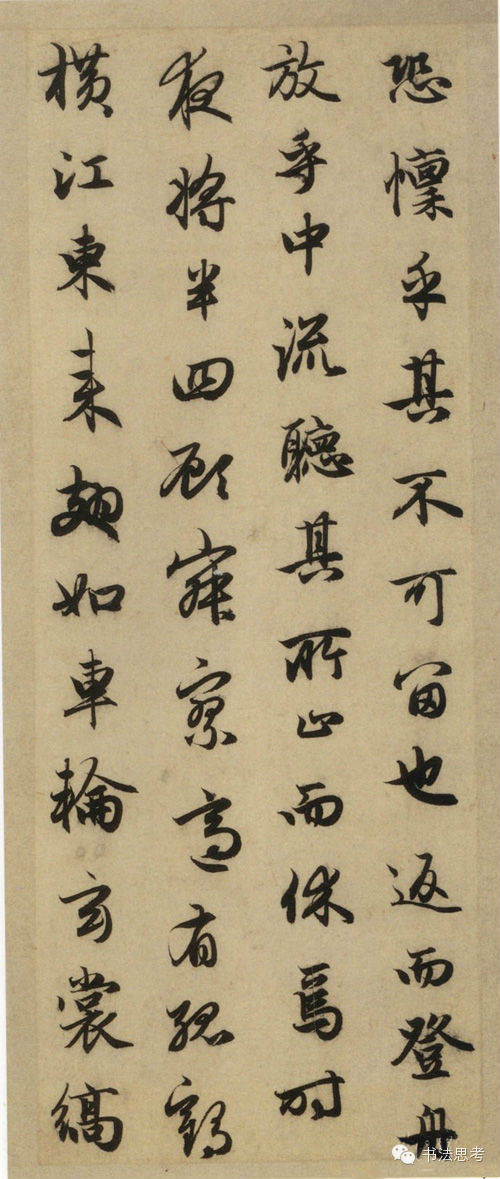 恐懍乎其不可留也返而登舟
放乎中流聽其所止而休焉時
夜將半四顧寂寥適有孤鶴
橫江東來翅如車輪玄裳縞
书法思考